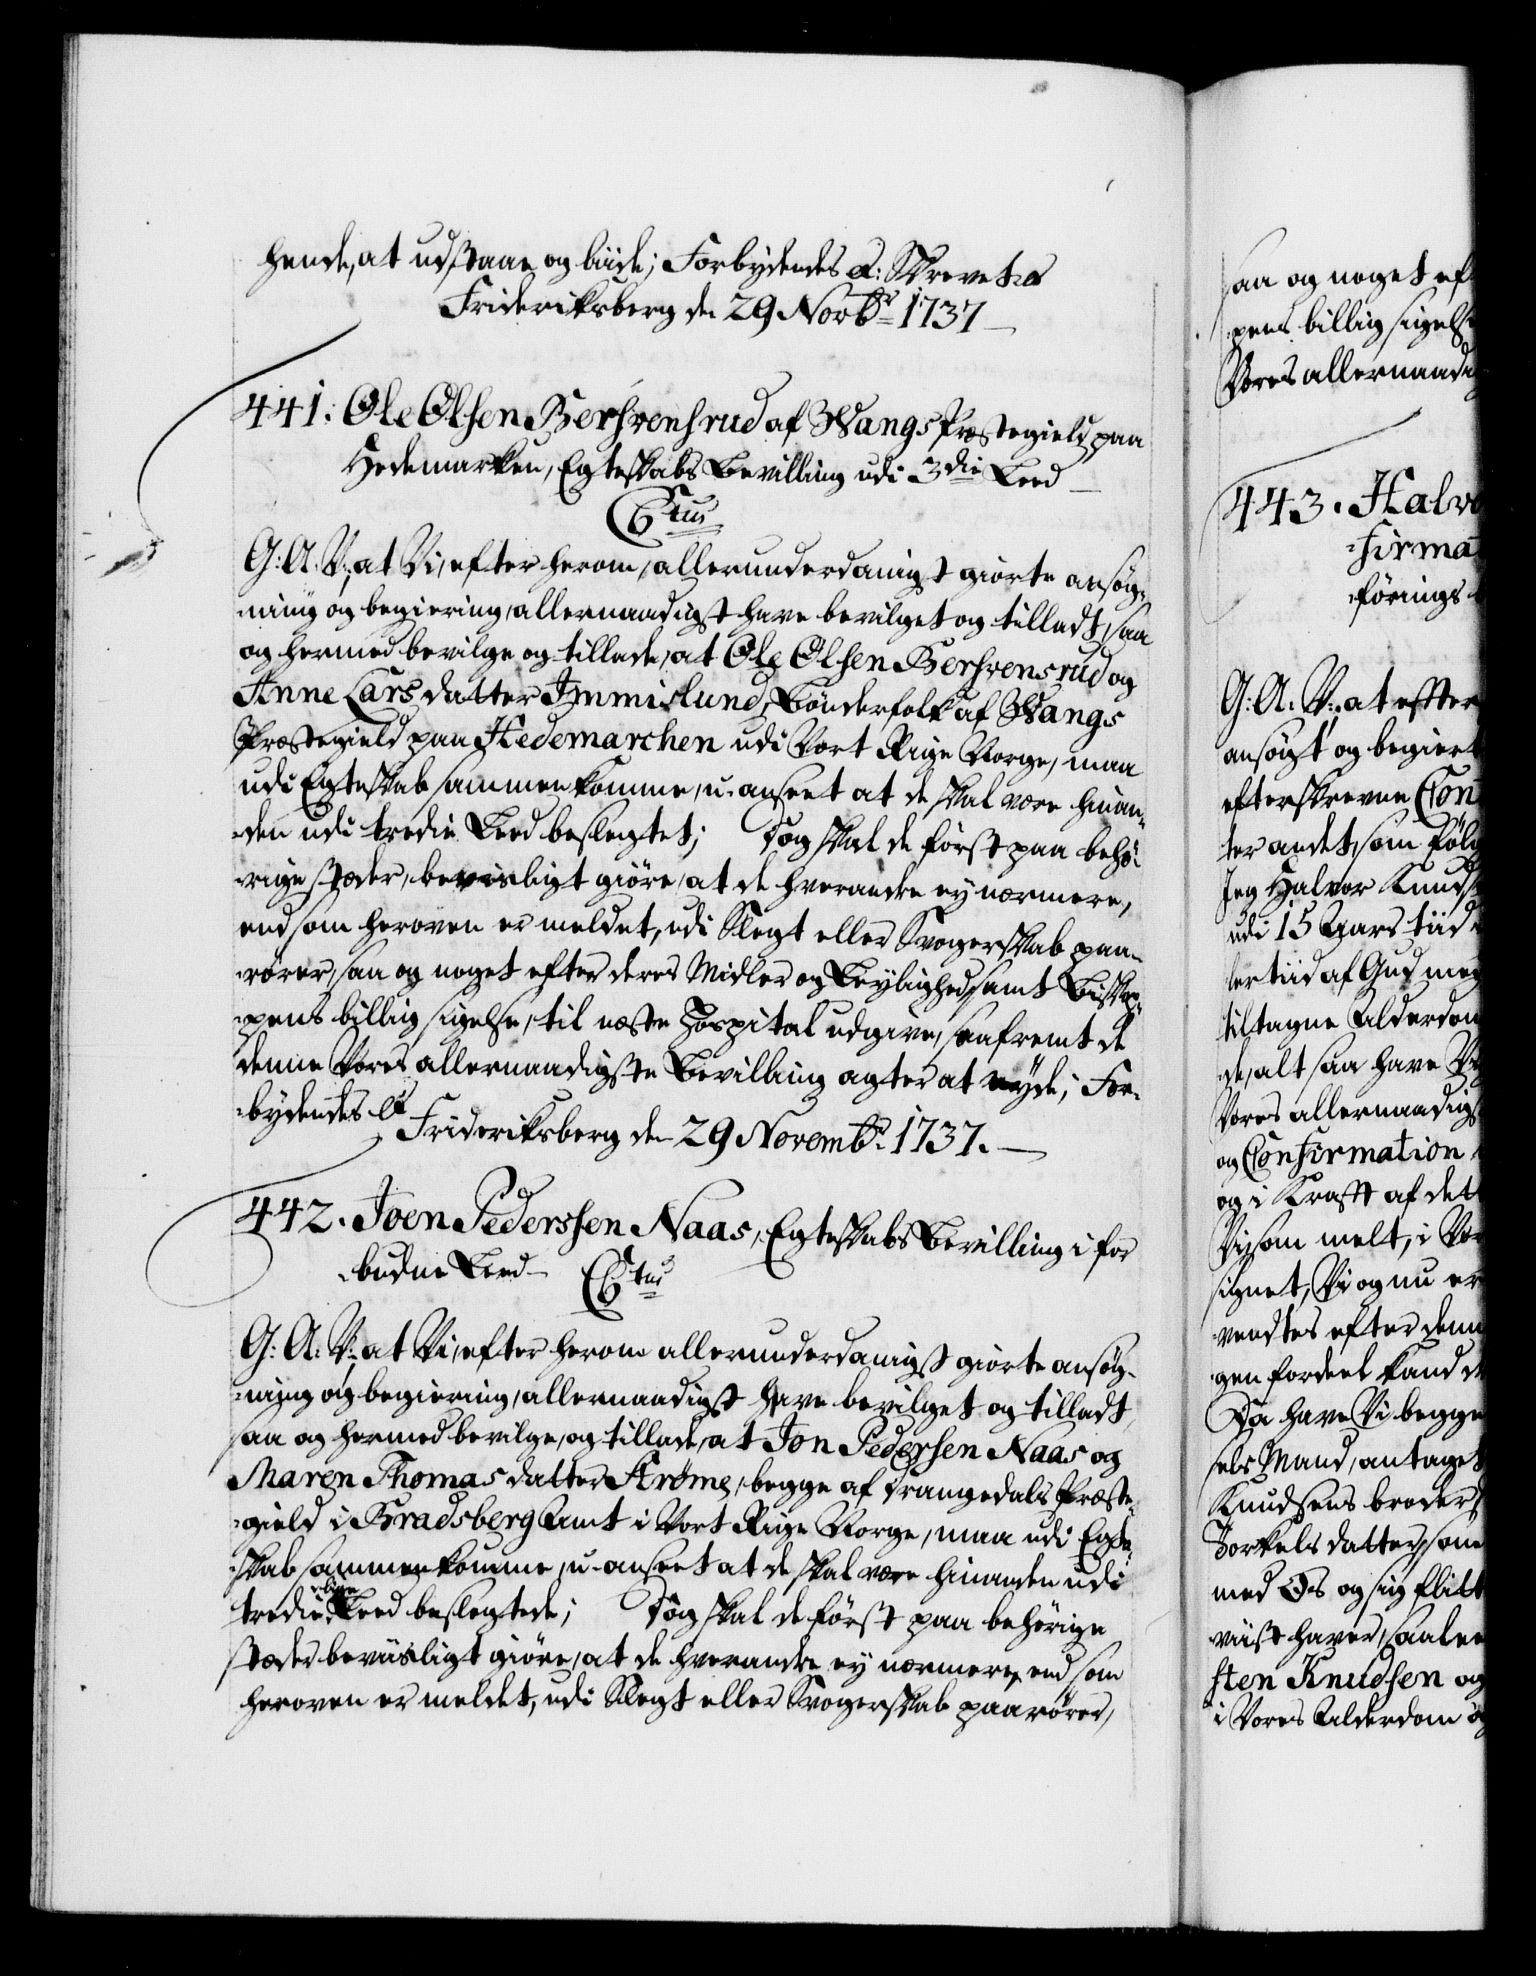 hende, at udstaae og bøde; Forbydendes &: Skrevet &
Frideriksberg den 29 Novbr 1737
441. Ole Olsen Bershrensrud af Wangs Præstegield paa
Hedemarken, Egteskabs Bevilling udi 3die Leed
Ctus
G: A: V: at Vi, efter herom, allerunderdanigst giorte ansøg-
-ning og begiering, allernaadigst have bevilget og tilladt, saa
og hermed bevilge og tillade, at Ole Olsen Bershrensrud og
Anne Lars datter Immislund, Bønderfolk af Wangs
Præstegield paa Hedemarchen udi Vort Rige Norge, maa
udi Egteskab sammenkomme, u-anseet at de skal være hinan-
-den udi tredie Leed beslegtet; Dog skal de først paa behø-
-rige stæder, bevisligt giøre, at de hverandre ey nærmere,
end som heroven er meldet, udi Slegt eller Svogerskab paa-
-rører, saa og noget efter deres Midler og Leylighed, samt Bisko-
-pens billig sigelse, til næste Hospital udgive, saafremt de
denne Vores allernaadigste Bevilling agter at nyde; For-
-bydendes &
Frideriksberg den 29 Novembr 1737.
442. Joen Pederssen Naas, Egteskabs Bevilling i for
-budne Leed Ctus
G: A: V: at Vi, efter herom allerunderdanigst giorte ansøg-
-ning og begiering, allernaadigst have bevilget og tilladt,
saa og hermed bevilge, og tillade, at Jon Pedersen Naas og
Maren Thomas datter Strømme, begge af Drangedals Præste-
-gield i Bradsberg Amt i Vort Rige Norge, maa udi Egte-
-skab sammenkomme, u-anseet at de skal være hinanden udi
tredie Leed beslegtede; Dog skal de først paa behørige
stæder beviisligt giøre, at de hverandre ey nærmere, end som
heroven er meldet, udi Slegt eller Svogerskab paarører,
saa og noget ef
pens billig sigels
Vores allernaadig
443. Halvo
-firma
førings
G: A: V: at efter
ansøgt og begiert
efterskrevne Con
ter andet, som følg
Jeg Halvor Knuds
udi 15 Aars tiid
ler tiid af Gud meg
tiltagne Alderdom
de, alt saa have Vi
Vores allernaadigs
og Confirmation
og i Kraft af det
Vi, som melt, i Vor
signet, Vi og nu er
-vendtes efter denn
gen fordeel kand
Da have Vi begge
sels Mand, antaget
Knudsens broder
Torkels datter, som
med Os og sig flitt
-viist haver, saalee
sten Knudsen og
i Vores Alderdom og